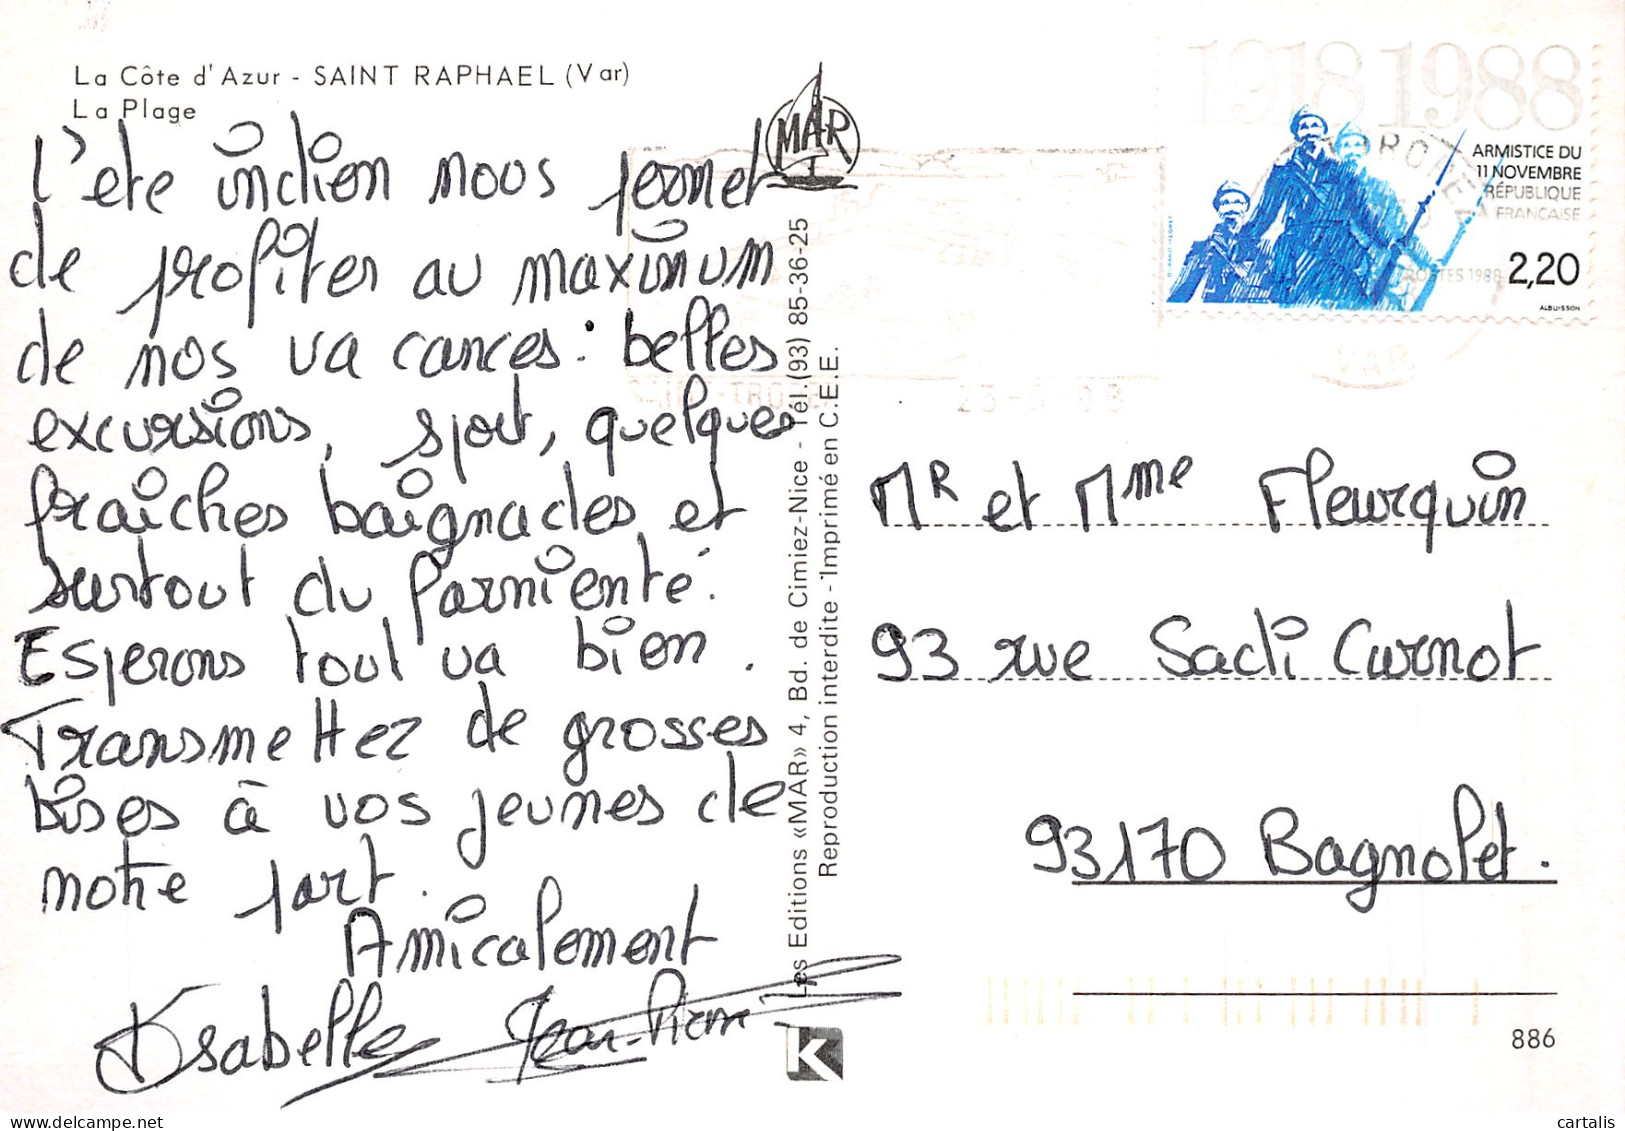 La Côte d'Azur - SAINT RAPHAEL (Var)
La Plage
L'ete indien nous permet
de profiter au maximum
de nos va cances : belles
excursions, sport, quelques
fraîches baignades et
surtout du farnienté.
Esperons tout va bien.
Transmettez de grosses
bises à vos jeunes de
notre part.
Amicalement
Isabelle Jean-Pierre
MAR
Les Editions «MAR» 4, Bd. de Cimiez-Nice - Tél. (93) 85-36-25
Reproduction interdite - Imprimé en C.E.E.
K
1918 1988
ARMISTICE DU
11 NOVEMBRE
RÉPUBLIQUE
FRANÇAISE
POSTES 1988
2,20
ALBUISSON
VAR
Mr et Mme Fleurquin
93 rue Sadi Carnot
93170 Bagnolet.
886
cartalis